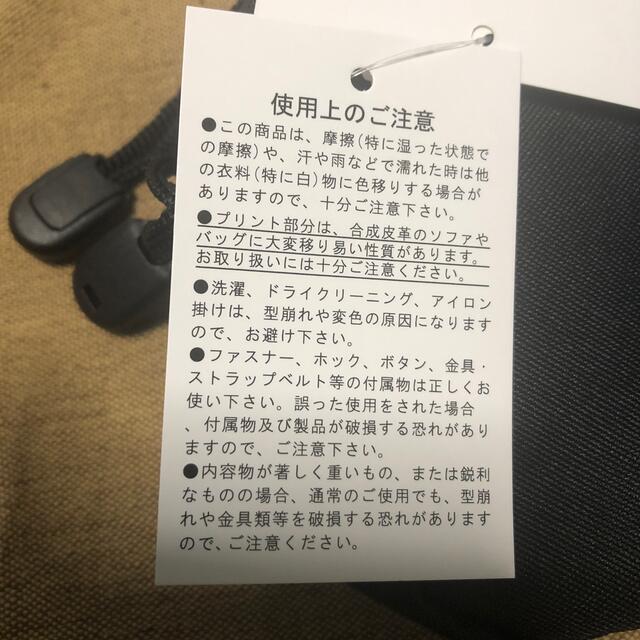 使用上のご注意
●この商品は、摩擦(特に湿った状態で
の摩擦)や、汗や雨などで濡れた時は他
の衣料(特に白)物に色移りする場合が
ありますので、十分ご注意下さい。
●プリント部分は、合成皮革のソファや
バッグに大変移り易い性質があります。
お取り扱いには十分ご注意ください。
●洗濯、ドライクリーニング、アイロン
掛けは、型崩れや変色の原因になります
ので、お避け下さい。
●ファスナー、ホック、ボタン、金具・
ストラップベルト等の付属物は正しくお
使い下さい。誤った使用をされた場合
、付属物及び製品が破損する恐れがあり
ますので、ご注意下さい。
●内容物が著しく重いもの、または鋭利
なものの場合、通常のご使用でも、型崩
れや金具類等を破損する恐れがあります
ので、ご注意ください。